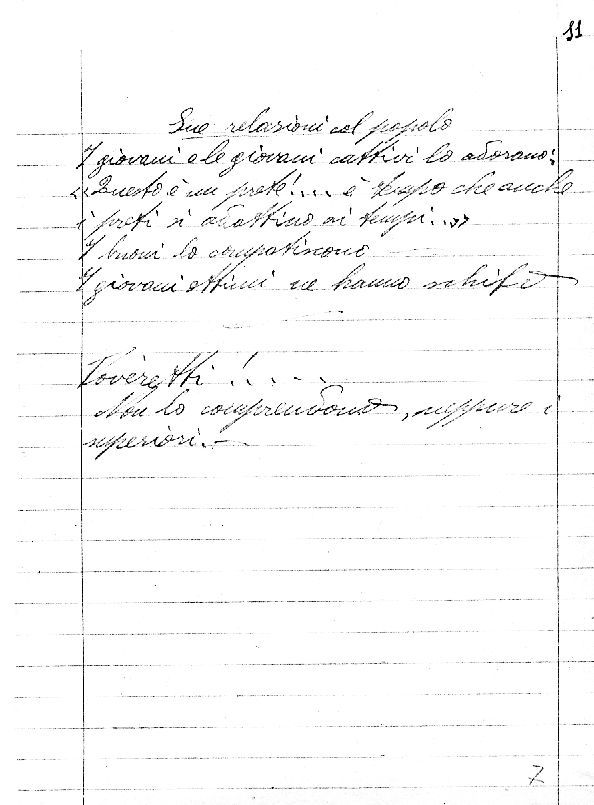 11
Sue relazioni col popolo
I giovani e le giovani cattivi lo adorano:
«Questo è un prete!... è tempo che anche
i preti si adattino ai tempi...»
I buoni lo compatiscono
I giovani ottimi ne hanno schifo
Poveretti!....
Non lo comprendono, neppure i
superiori.—
7